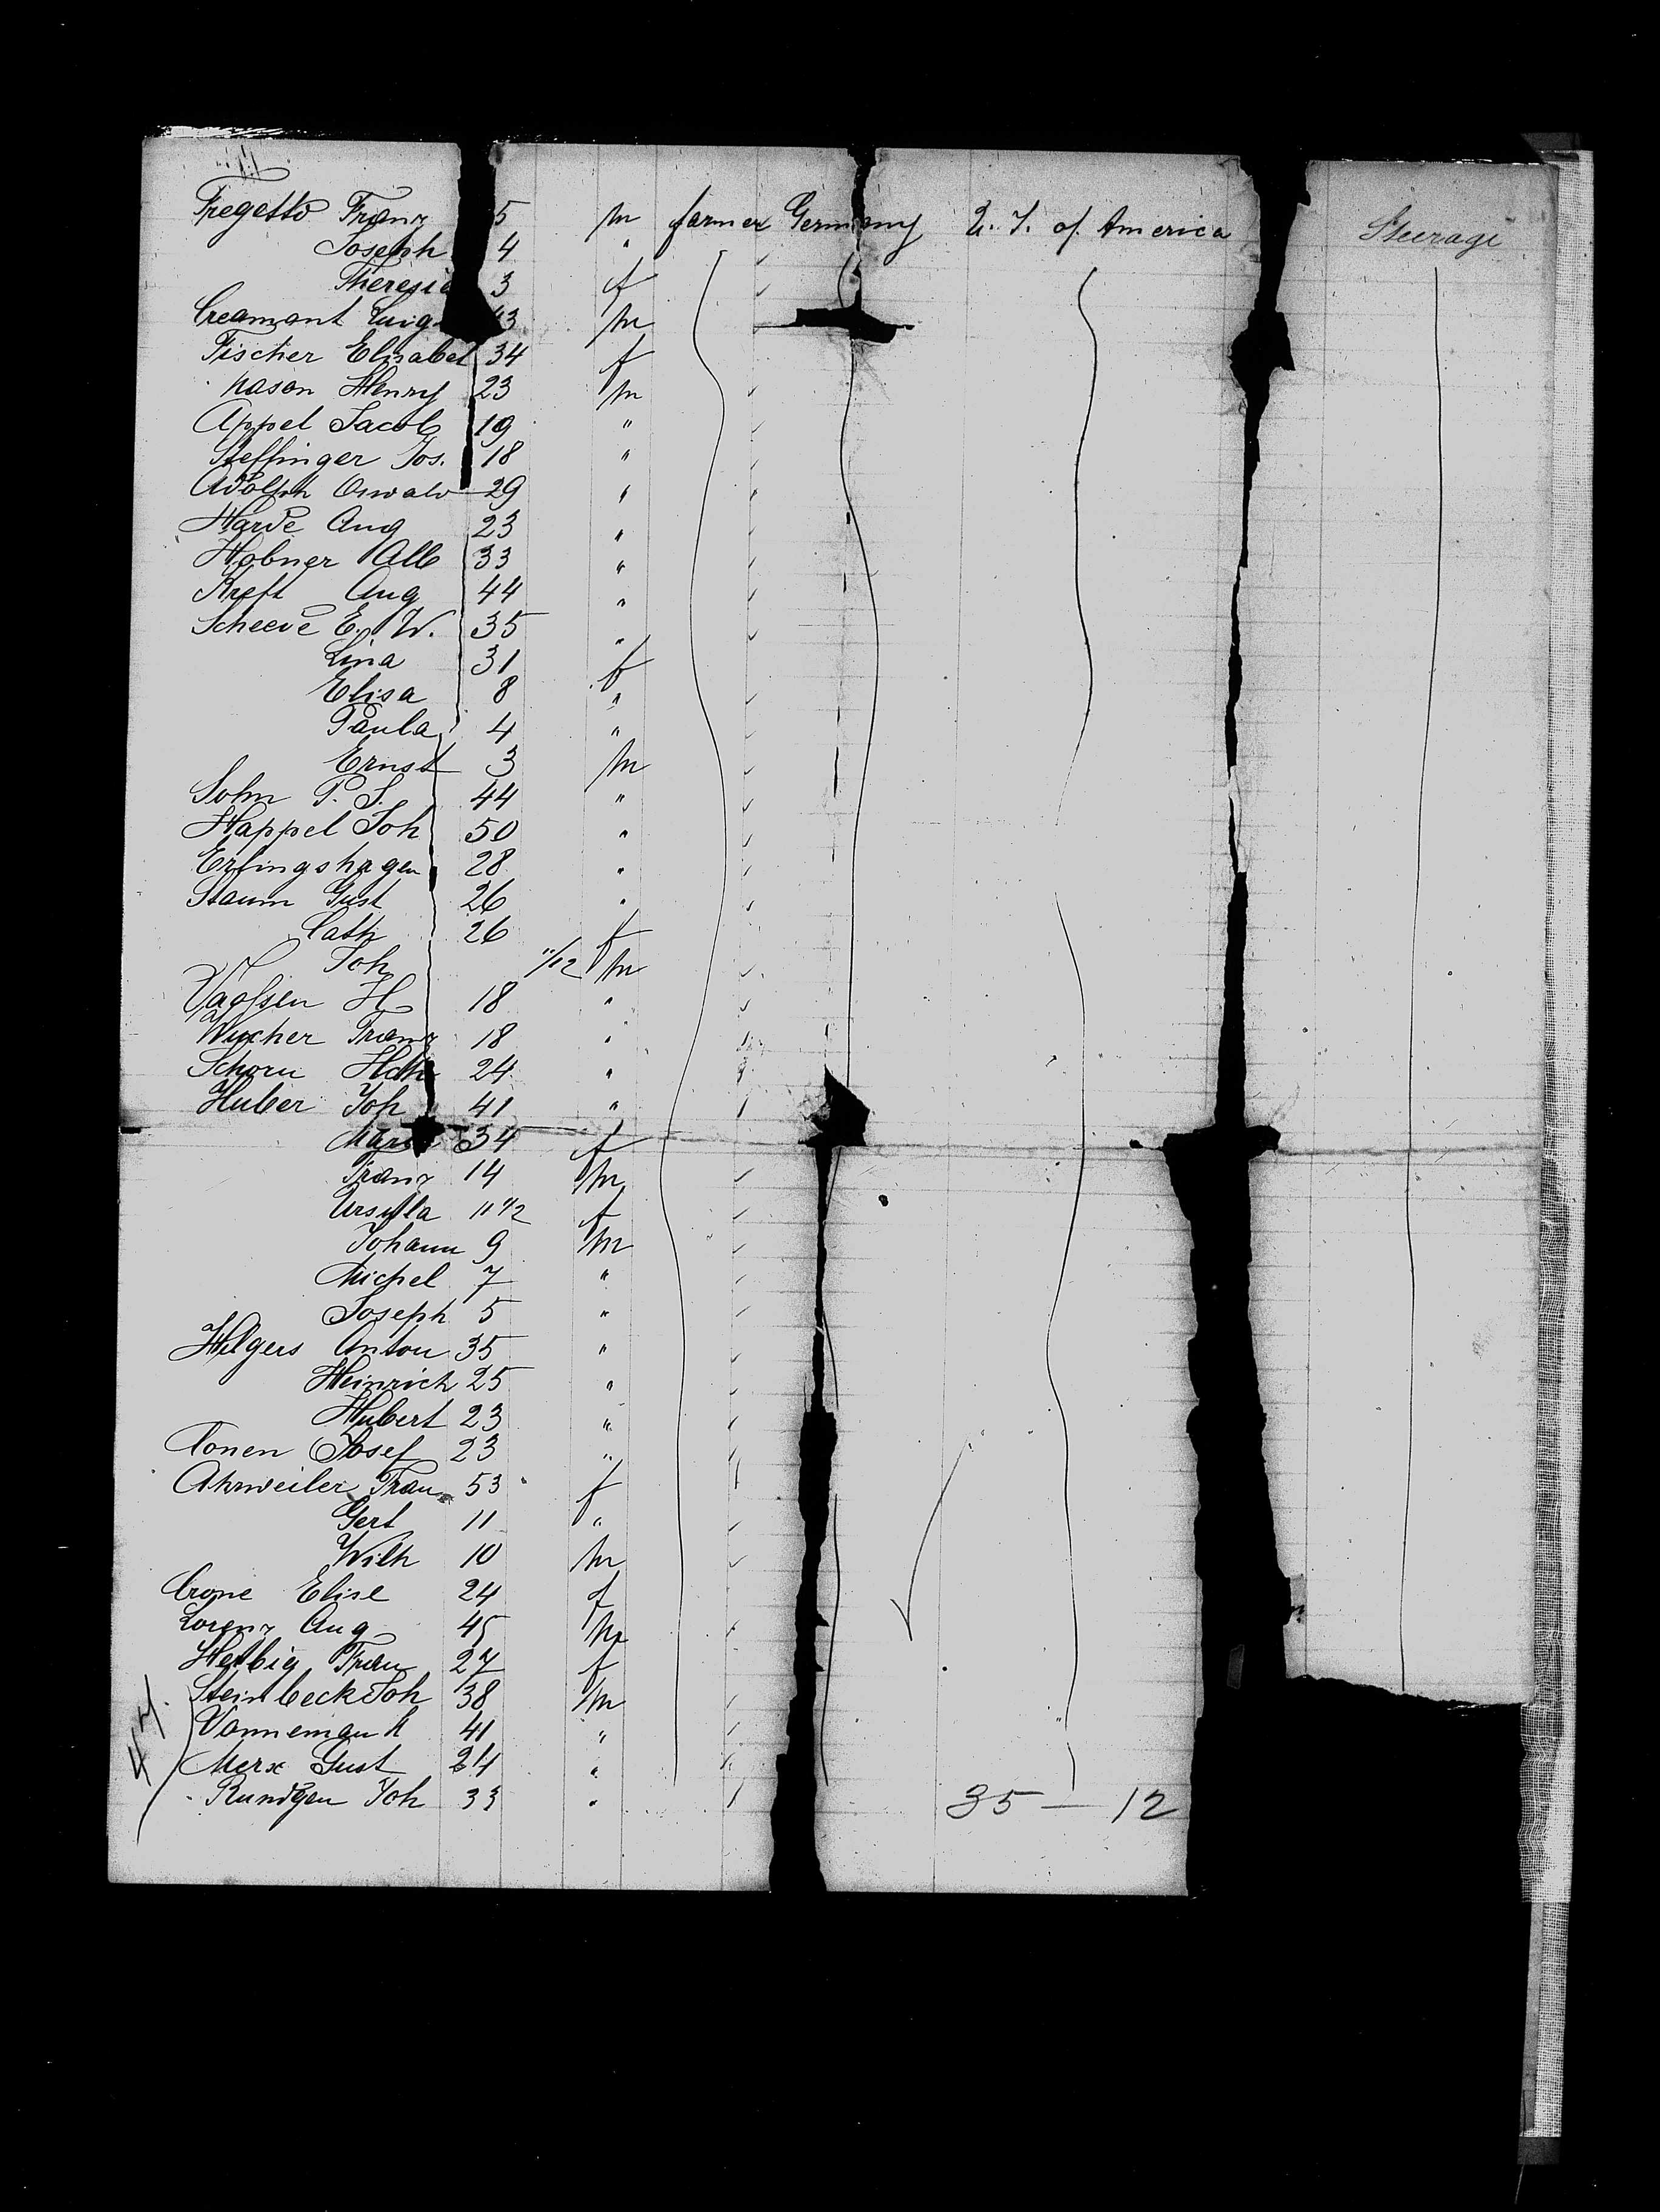 Fregatto Franz 5 m farmer Germany U. S. of America Steerage
Joseph 4 "
Theresia 3 f
Creamant Luig 43 m
Fischer Elisabet 34 f
Nason Henry 23 m
Appel Jacob 19 "
Steffinger Jos. 18 "
Adolph Oswald 29 "
Harde Aug 23 "
Hobner Alb 33 "
Kreft Aug 44 "
Scheeve E. W. 35 "
Lina 31 f
Elisa 8 "
Paula 4 "
Ernst 3 m
Sohn P. S. 44 "
Happel Joh 50 "
Erlingshagen 28 "
Staum Gust 26 "
Cath 26 f
Joh 11/12 m
H 18 "
Wucher Franz 18 "
Schorn 24 "
Huber Joh 41 "
Maria 34 f
Franz 14 m
Ursula 11 1/2 f
Johann 9 m
Michel 7 "
Joseph 5 "
Hilgers Anton 35 "
Heinrich 25 "
Hubert 23 "
Conen Josef 23 "
Ahrweiler Frau 53 f
Gert 11 "
Wilh 10 m
Crone Elise 24 f
Lorenz Aug 45 m
Helbig Frau 27 f
Steinbeck Joh 38 m
Vanneman K 41 "
Merx Gust 24 "
Rundgen Joh 33 "
47.
35 — 12